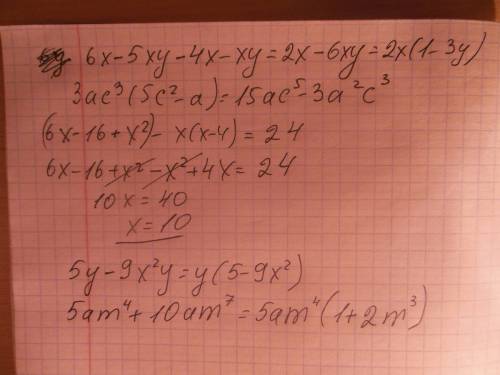 6x-5xy-4x-xy=2x-6xy=2x(1-3y)
3ac³(5c²-a)=15ac⁵-3a²c³
(6x-16+x²)-x(x-4)=24
6x-16+x²-x²+4x=24
10x=40
x=10
5y-9x²y=y(5-9x²)
5am⁴+10am⁷=5am⁴(1+2m³)